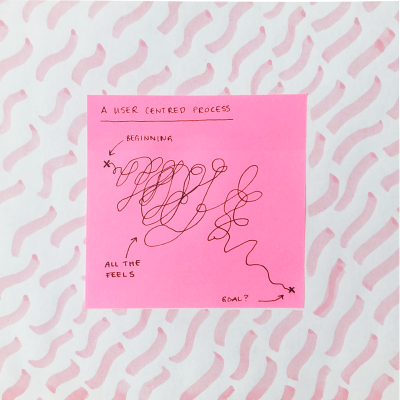 A USER CENTRED PROCESS
BEGINNING
ALL THE
FEELS
GOAL?